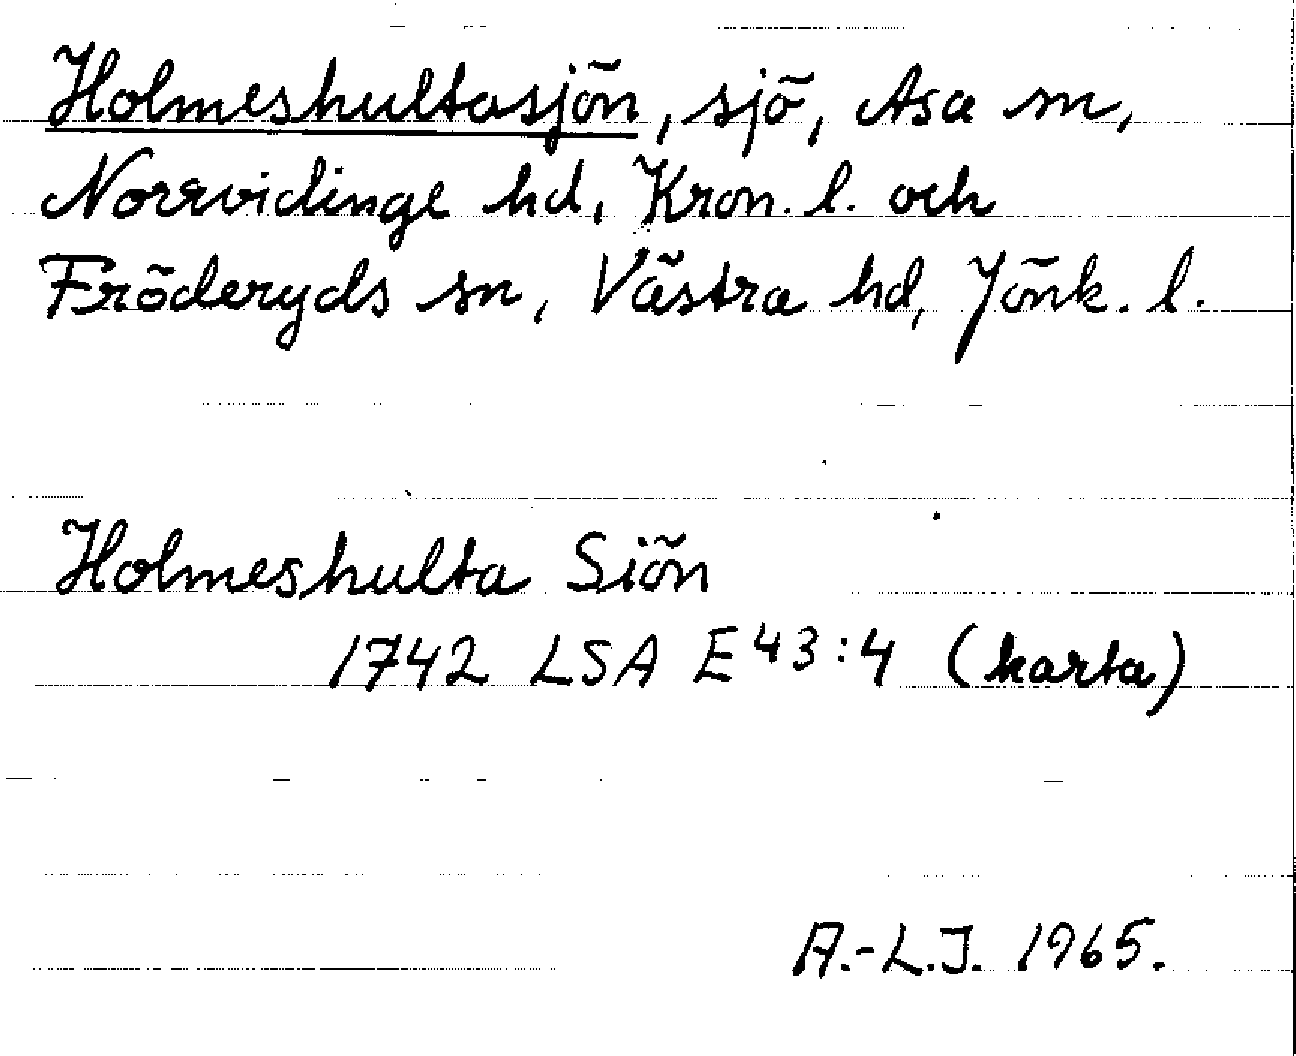 Holmeshultasjön, sjö, Asa sn,
Norrvidinge hd, Kron. l. och
Fröderyds sn, Västra hd, Jönk. l.
Holmeshulta Siön
1742 LSA E 43:4 (karta)
A.-L.J. 1965.